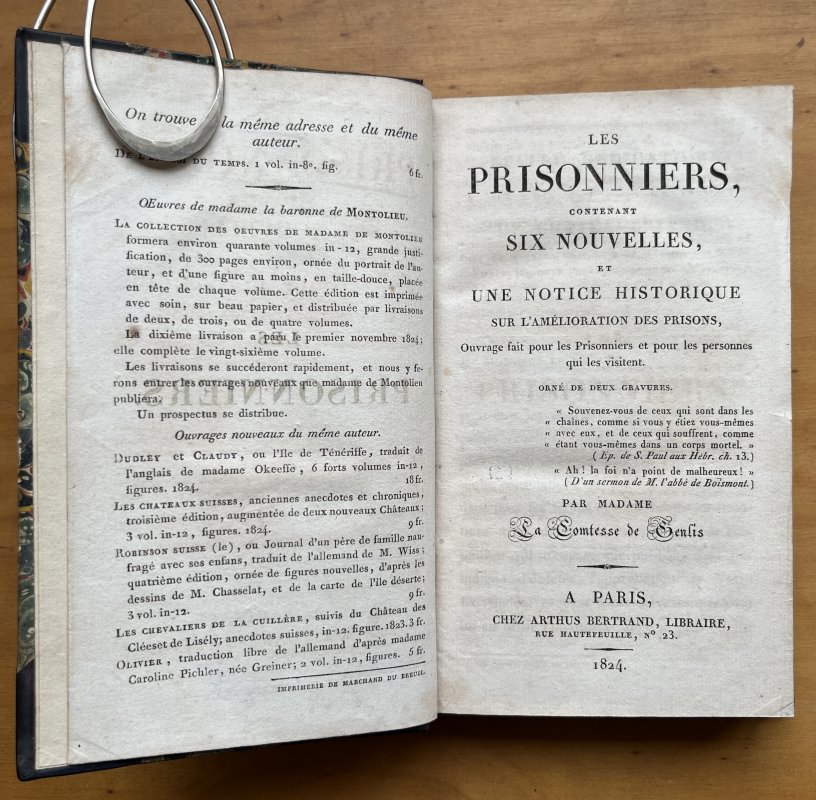 On trouve la même adresse et du même
auteur.
DU TEMPS. 1 vol. in-8º. fig. 6 fr.
OEuvres de madame la baronne de MONTOLIEU.
LA COLLECTION DES OEUVRES DE MADAME DE MONTOLIEU
formera environ quarante volumes in-12, grande justi-
fication, de 300 pages environ, ornée du portrait de l'au-
teur, et d'une figure au moins, en taille-douce, placée
en tête de chaque volume. Cette édition est imprimée
avec soin, sur beau papier, et distribuée par livraisons
de deux, de trois, ou de quatre volumes.
La dixième livraison a paru le premier novembre 1824;
elle complète le vingt-sixième volume.
Les livraisons se succéderont rapidement, et nous y fe-
rons entrer les ouvrages nouveaux que madame de Montolieu
publiera.
Un prospectus se distribue.
Ouvrages nouveaux du même auteur.
DUDLEY et CLAUDY, ou l'Ile de Ténériffe, traduit de
l'anglais de madame Okeeffe, 6 forts volumes in-12,
figures. 1824. 18 fr.
LES CHATEAUX SUISSES, anciennes anecdotes et chroniques,
troisième édition, augmentée de deux nouveaux Châteaux;
3 vol. in-12, figures. 1824. 9 fr.
ROBINSON SUISSE (le), ou Journal d'un père de famille nau-
fragé avec ses enfans, traduit de l'allemand de M. Wiss;
quatrième édition, ornée de figures nouvelles, d'après les
dessins de M. Chasselat, et de la carte de l'île déserte;
3 vol. in-12. 9 fr.
LES CHEVALIERS DE LA CUILLÈRE, suivis du Château des
Cléeset de Lisély; anecdotes suisses, in-12. figure. 1823. 3 fr.
OLIVIER, traduction libre de l'allemand d'après madame
Caroline Pichler, née Greiner; 2 vol. in-12, figures. 5 fr.
IMPRIMERIE DE MARCHAND DU BREUIL.
LES
PRISONNIERS,
CONTENANT
SIX NOUVELLES,
ET
UNE NOTICE HISTORIQUE
SUR L'AMÉLIORATION DES PRISONS,
Ouvrage fait pour les Prisonniers et pour les personnes
qui les visitent.
ORNÉ DE DEUX GRAVURES.
« Souvenez-vous de ceux qui sont dans les
« chaînes, comme si vous y étiez vous-mêmes
« avec eux, et de ceux qui souffrent, comme
« étant vous-mêmes dans un corps mortel. »
( Ep. de S. Paul aux Hébr. ch. 13.)
« Ah ! la foi n'a point de malheureux ! »
( D'un sermon de M. l'abbé de Boismont.)
PAR MADAME
La Comtesse de Genlis
A PARIS,
CHEZ ARTHUS BERTRAND, LIBRAIRE,
RUE HAUTEFEUILLE, Nº 23.
1824.